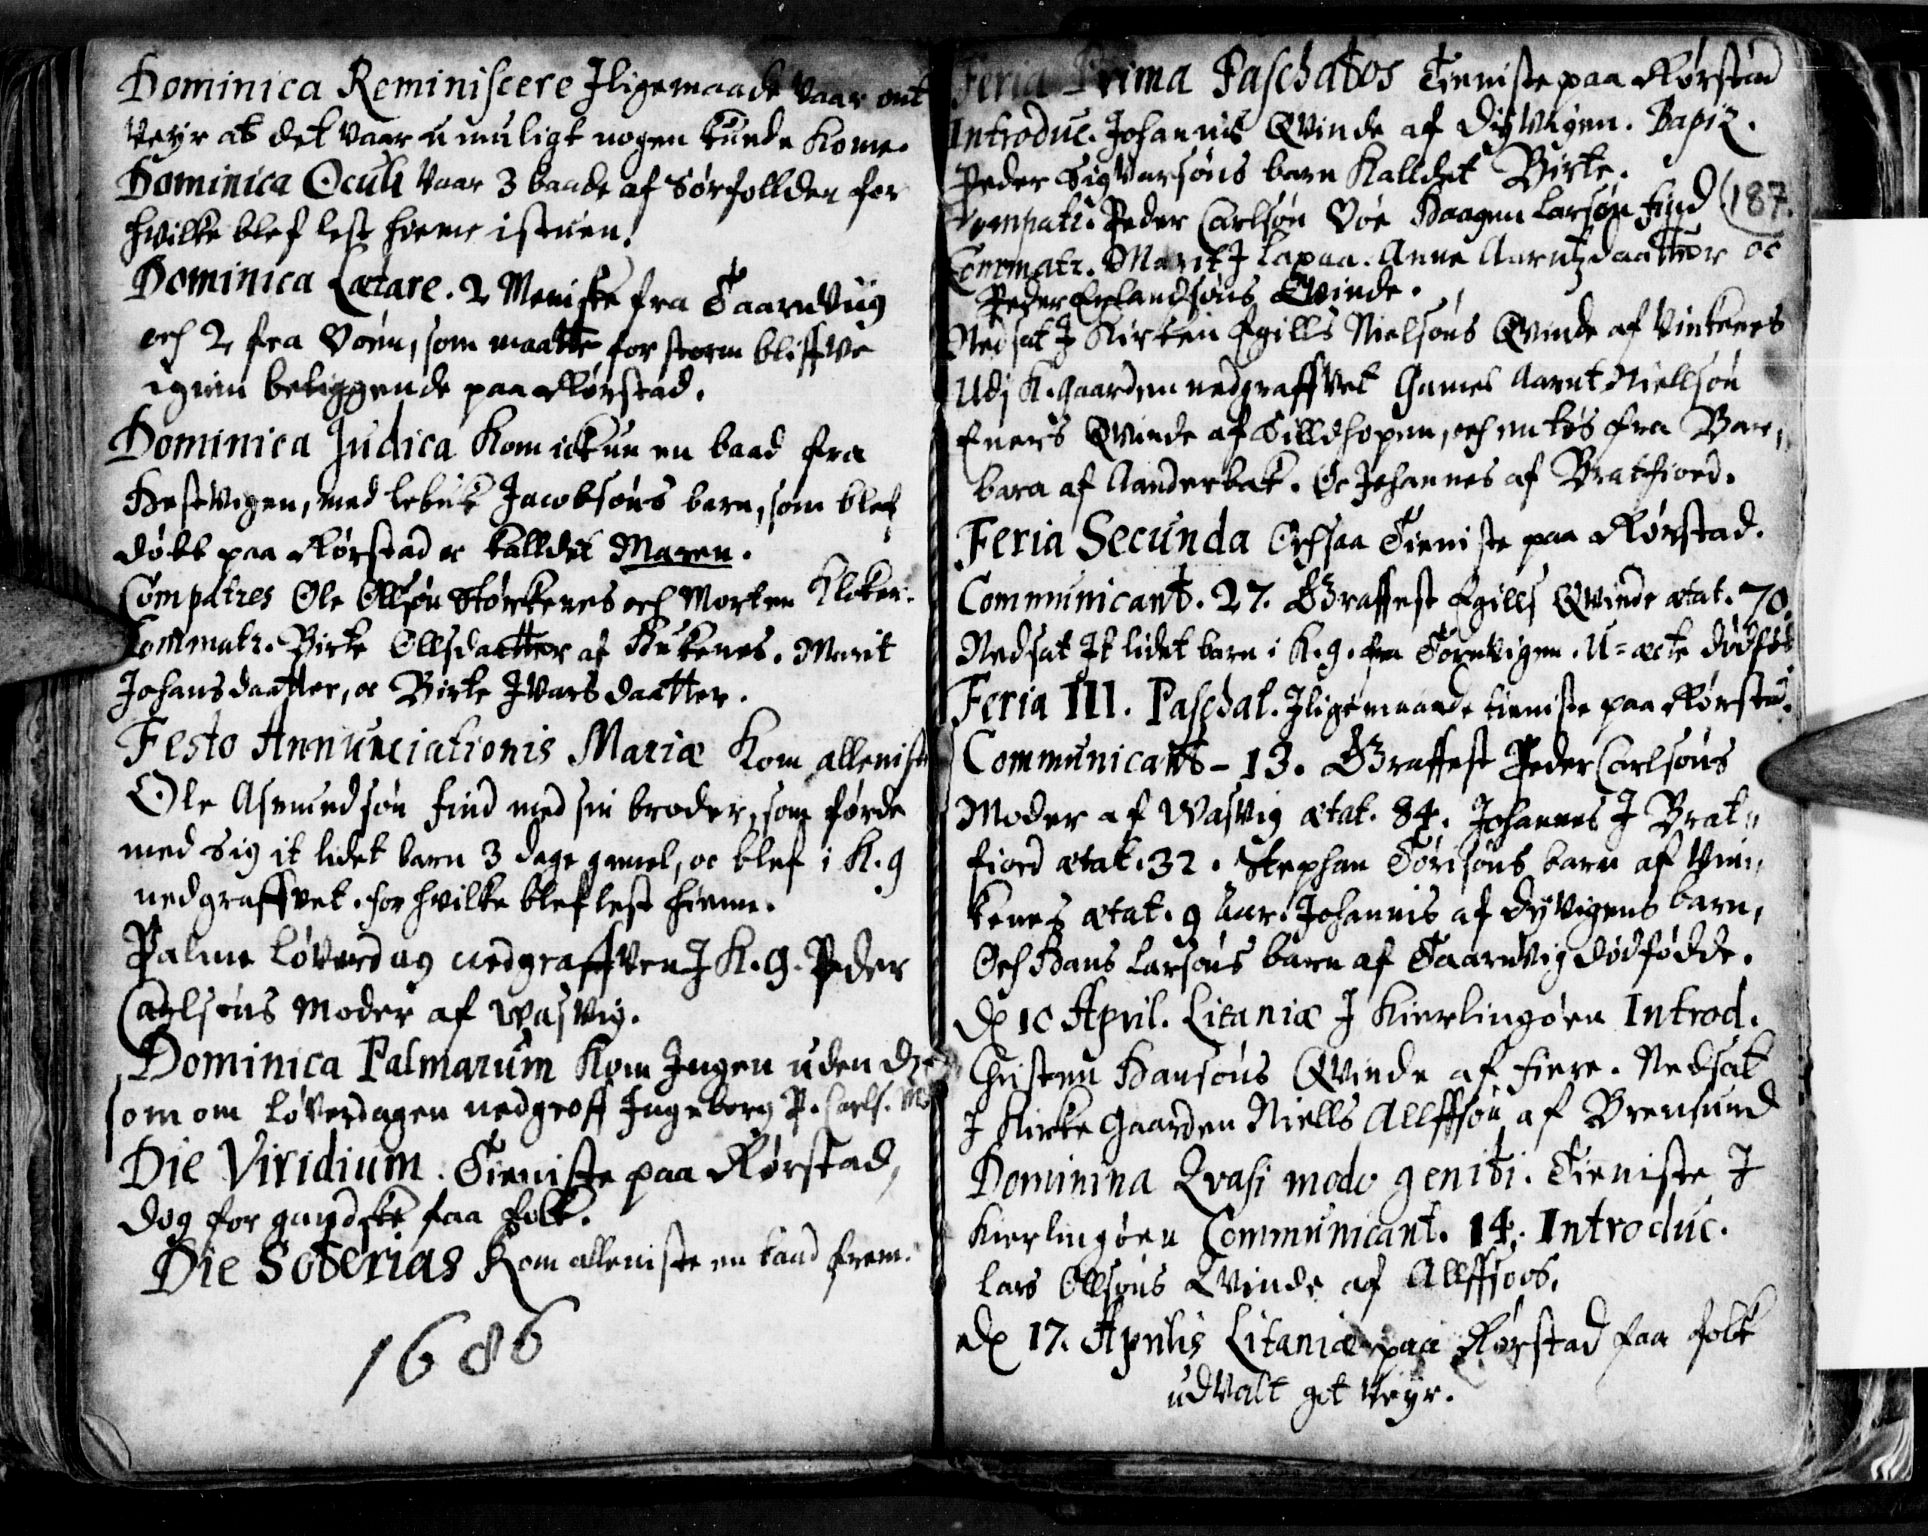 Dominica Reminiscere Iligemaade vaar ont
veyr at det vaar umuligt nogen kunde kome.
Dominica Oculi vaar 3 baade af Sørfollden for
hvilke blef lest hieme i stuen.
Dominica Lætare. 2 Meniske fra Taarnviig
och 2 fra Vøen, som maatte for storm bliffve
igien beliggende paa Rørstad.
Dominica Judica kom ickun en baad fra
Hestvigen, med Jacobsøns barn, som blef
døbt paa Rørstad oc kalldet Maren.
Compatres Ole Ollsøn Størckenes och Morten Klocker.
Commatr. Birte Ollsdaatter af Hukenes. Marit
Johansdaatter, oc Birte Ivarsdaatter.
Festo Annunciationis Mariæ kom alleniste
Ole Asmundsøn find med sin broder, som førde
med sig it lidet barn 3 dage gamel, oc blef i K. g
nedgraffvet. for hvilke blef lest hieme.
Palme Løverdag nedgraffven I K. G. Peder
Carlsøns Moder af Wasvig.
Dominica Palmarum kom Ingen uden de
som om Løverdagen nedgroff Ingeborg P. Carls. Mo
Die Viridium. Tieniste paa Rørstad,
dog for gandske faa folk.
Die Soterias kom alleniste en baad frem.
1686
Feria Prima Paschatos Tieniste paa Rørstad
Introduc. Johannis Qvinde af Dyvigen. Bapiz.
Peder Sigvarsøns barn kalldet Birte.
187.
Compatr. Peder Carlsøn Vøe Haagen Larsøn find
Commatr. Marit I Lapaa. Anne Aarntzdaatter oc
Peder Erlandsøns Qvinde.
Nedsat I Kirken Egills Nielsøns Qvinde af Vinkenes
Udj K. gaarden nedgraffvet Games Aarnt Niellsøn
Eners Qvinde af Tilldhopen, och en tøs fra Bar,,
bara af Aanderbak. Oc Johannes af Bratfiord.
Feria Secunda Ochsaa Tieniste paa Rørstad.
Communicant. 27. Graffest Egills Qvinde ætat. 70.
Nedsat It lidet barn i K. g. fra Torvigen. U=æcte dødføt
Feria III. Paschat. Iligemaade tieniste paa Rørstad.
Communicant - 13. Graffest Peder Carlsøns
Moder af Wasvig ætat. 84. Johannes I Brat,,
fiord ætat. 32. Stephan Torisøns barn af Vin,,
kenes ætat. 9 Aar. Johannis af Dyvigens barn,
Och Hans Larsøns barn af Taarnvig dødfødde.
D. 10 April. Litaniæ I Kierlingøen Introd.
Christen Hansøns Qvinde af Fiere. Nedsat
I Kirke Gaarden Niells Allffsøn af Brensund
Dominina Qvasi modo geniti. Tieniste I
Kierlingøen Communicant. 14. Introduc.
Lars Ollsøns Qvinde af Allffsoos.
D. 17. Aprilis Litaniæ paa Rørstad faa folk
udvalt got veyr.